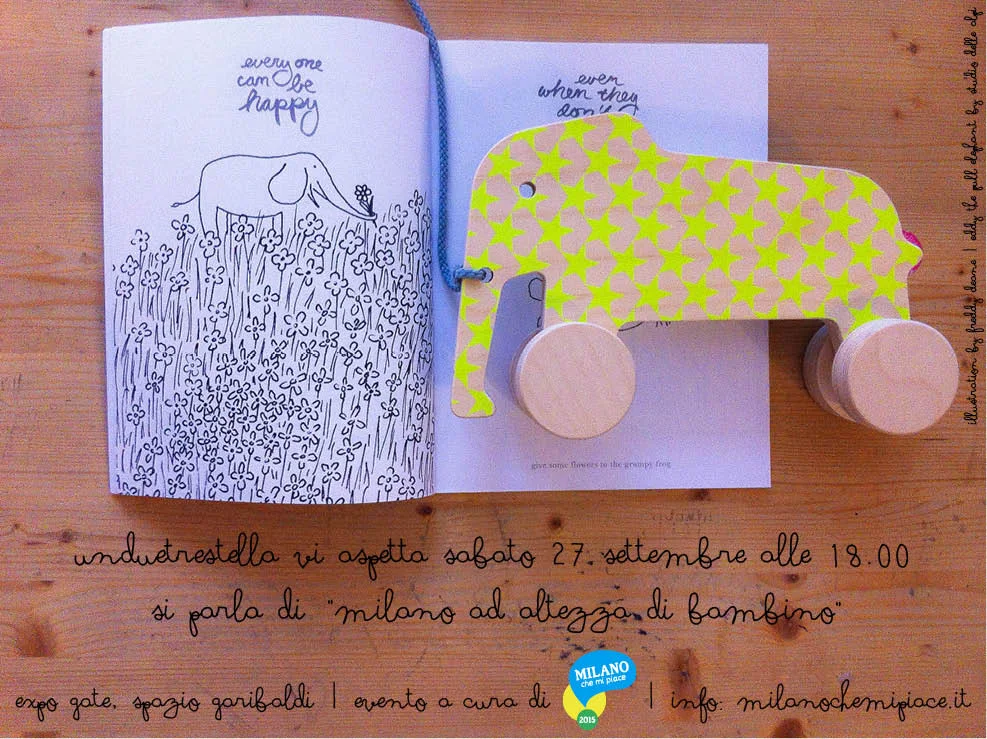 every one
can be
happy
even
when they
don't
give some flowers to the grumpy frog
illustration by freddy deane | eddy the pull elefant by studio delle alpi
unduetrestella vi aspetta sabato 27 settembre alle 18.00
si parla di "milano ad altezza di bambino"
expo gate, spazio garibaldi | evento a cura di
MILANO
che mi piace
2015
| info: milanochemipiace.it